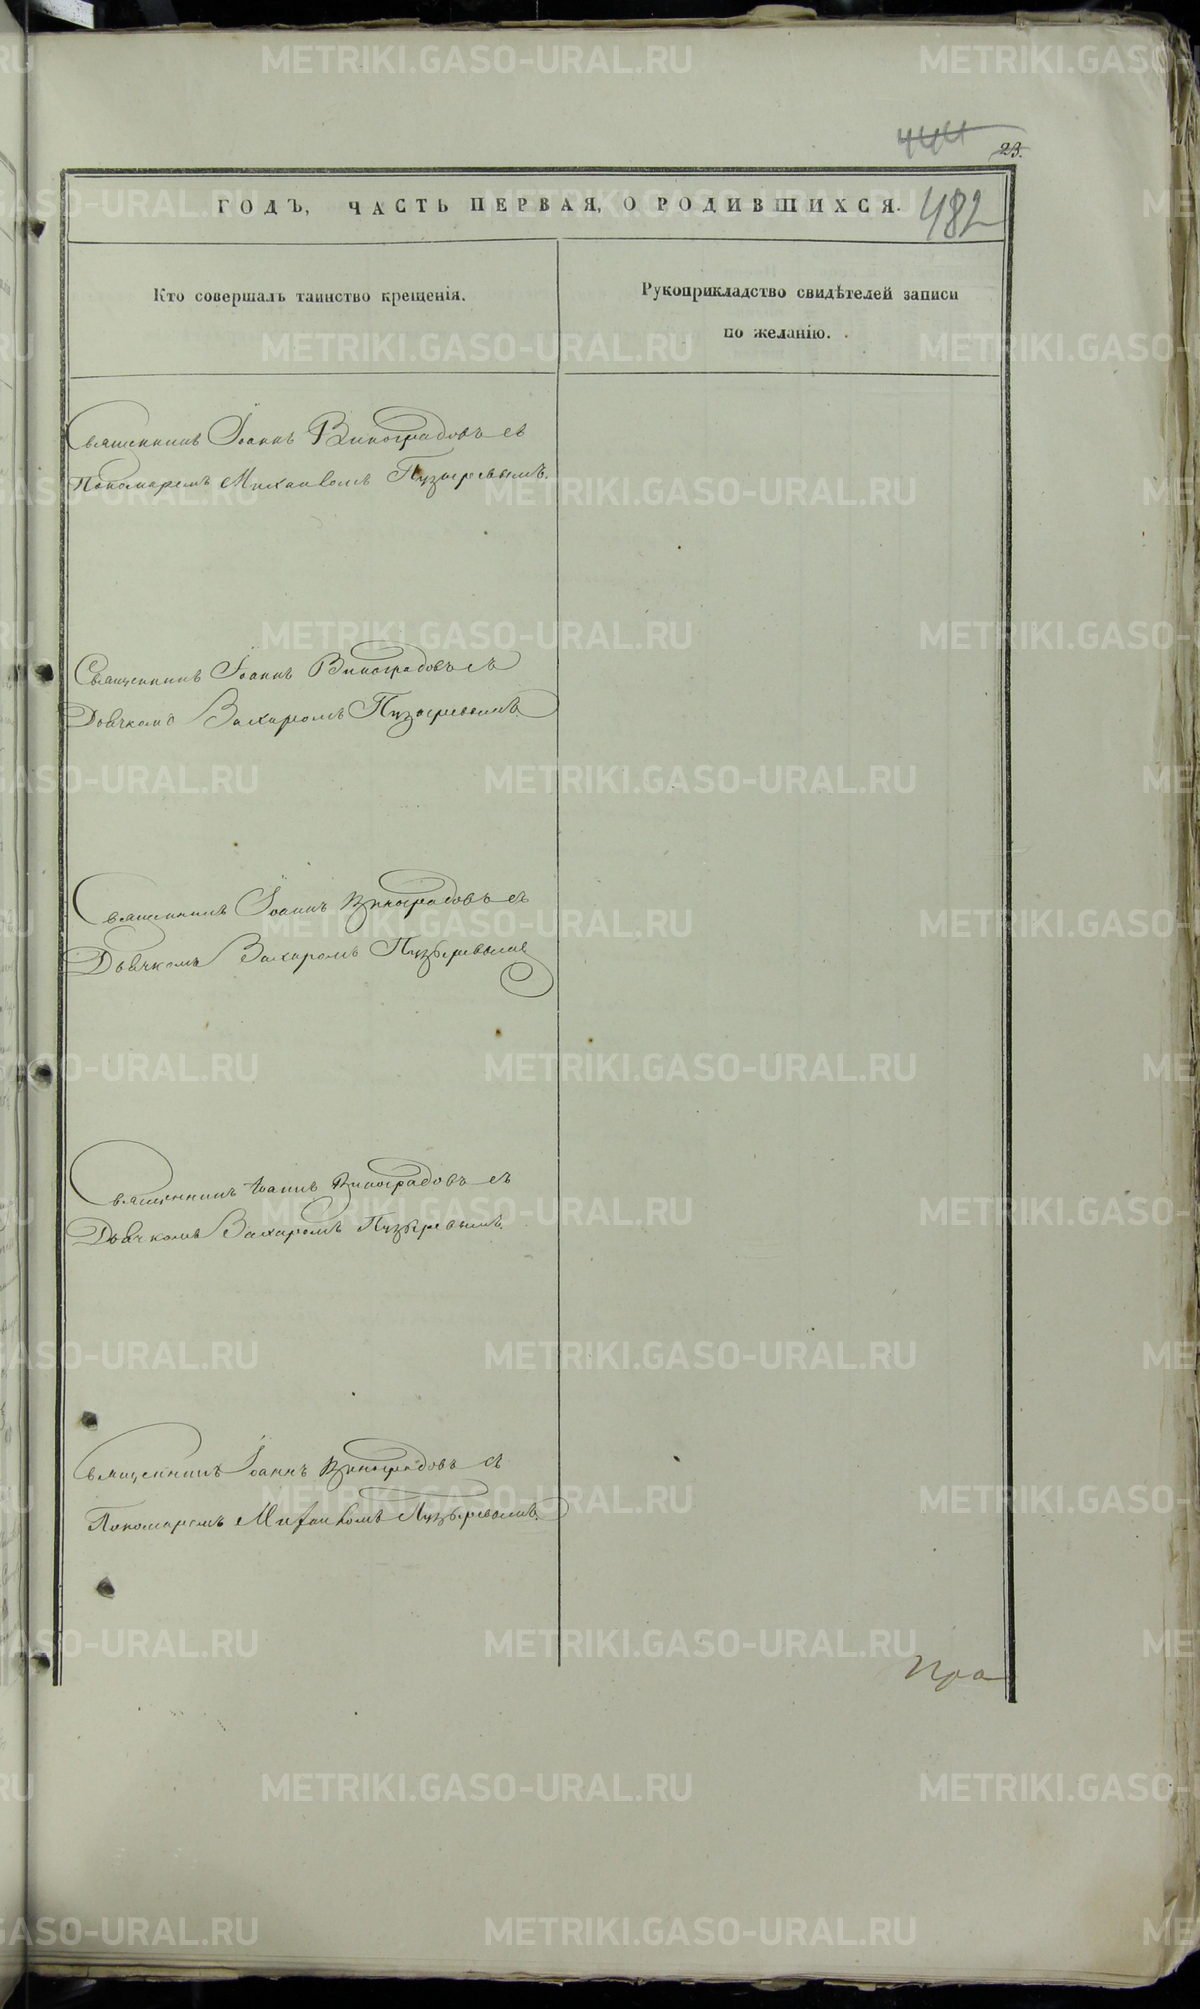 23.
482
ГОДЪ, ЧАСТЬ ПЕРВАЯ, О РОДИВШИХСЯ.
Кто совершалъ таинство крещенія.
Рукоприкладство свидѣтелей записи
по желанію.
Священникъ Іоаннъ Виноградовъ съ
Пономаремъ Михаиломъ Пузыревымъ.
Священникъ Іоаннъ Виноградовъ съ
Дьячкомъ Захаромъ Пузыревымъ
Священникъ Іоаннъ Виноградовъ съ
Дьячкомъ Захаромъ Пузыревымъ
Священникъ Іоаннъ Виноградовъ съ
Дьячкомъ Захаромъ Пузыревымъ
Священникъ Іоаннъ Виноградовъ съ
Пономаремъ Михаиломъ Пузыревымъ.
Пра
METRIKI.GASO-URAL.RU